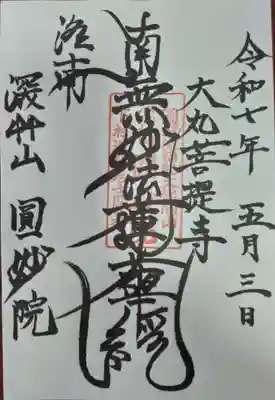 令和七年 五月三日
大丸菩提寺
南無妙法蓮華経
洛南
深草山 圓妙院